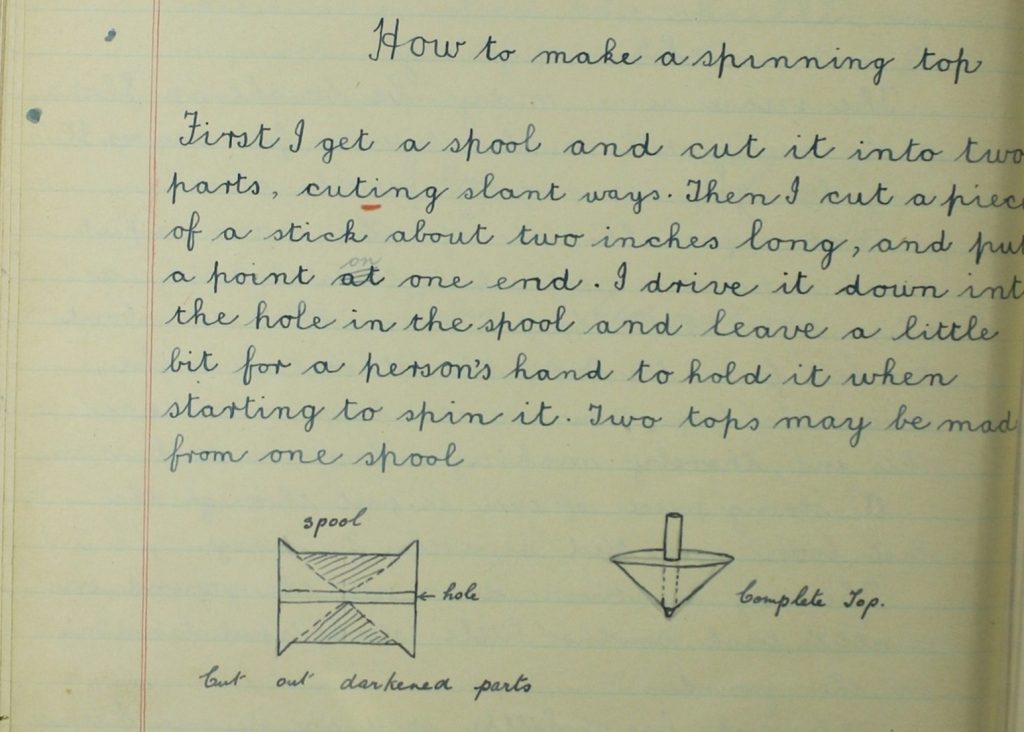 How to make a spinning top
First I get a spool and cut it into two
parts, cuting slant ways. Then I cut a piec
of a stick about two inches long, and put
on
a point at one end. I drive it down int
the hole in the spool and leave a little
bit for a person's hand to hold it when
starting to spin it. Two tops may be mad
from one spool
spool
hole
Complete Top.
Cut out darkened parts